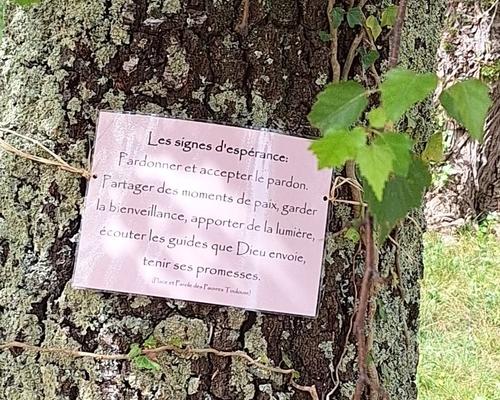 Les signes d'espérance:
Pardonner et accepter le pardon.
Partager des moments de paix, garder
la bienveillance, apporter de la lumière,
écouter les guides que Dieu envoie,
tenir ses promesses.
(Place et Parole des Pauvres Toulouse)